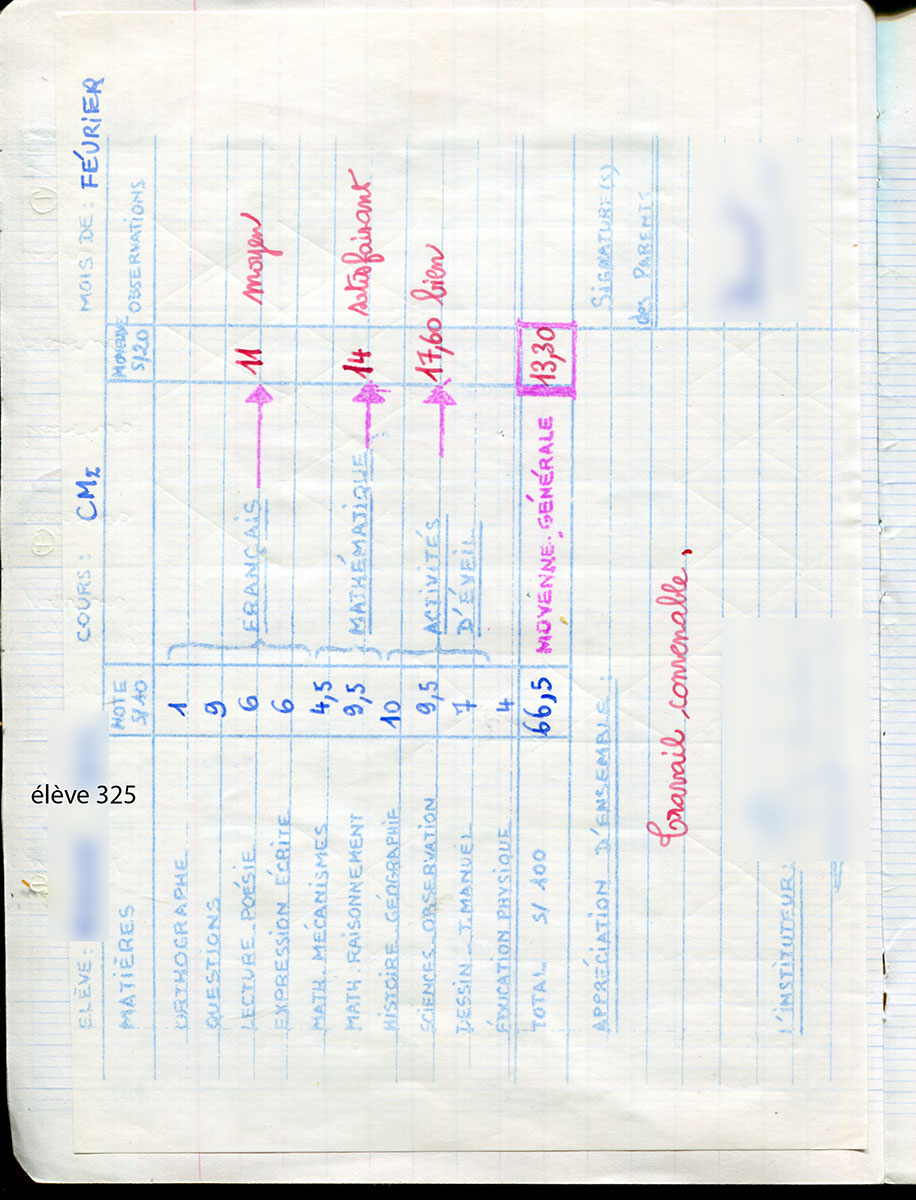 ELÈVE: COURS: CM2 MOIS DE: FÉVRIER
élève 325
MATIÈRES NOTE S/10 MOYENNE S/20 OBSERVATIONS
ORTHOGRAPHE 1
QUESTIONS 9
LECTURE. POÉSIE 6 FRANÇAIS 11 moyen
EXPRESSION ÉCRITE 6
MATH. MÉCANISMES 4,5
MATH. RAISONNEMENT 9,5 MATHÉMATIQUE 14 satisfaisant
HISTOIRE. GÉOGRAPHIE 10
SCIENCES. OBSERVATION 9,5 ACTIVITÉS 17,60 bien
DESSIN _ T. MANUEL 7 D'ÉVEIL
ÉDUCATION PHYSIQUE 4
TOTAL S/ 100 66,5 MOYENNE. GÉNÉRALE 13,30
APPRÉCIATION D'ENSEMBLE: SIGNATURE(S)
des PARENTS
travail convenable.
L'INSTITUTEUR: